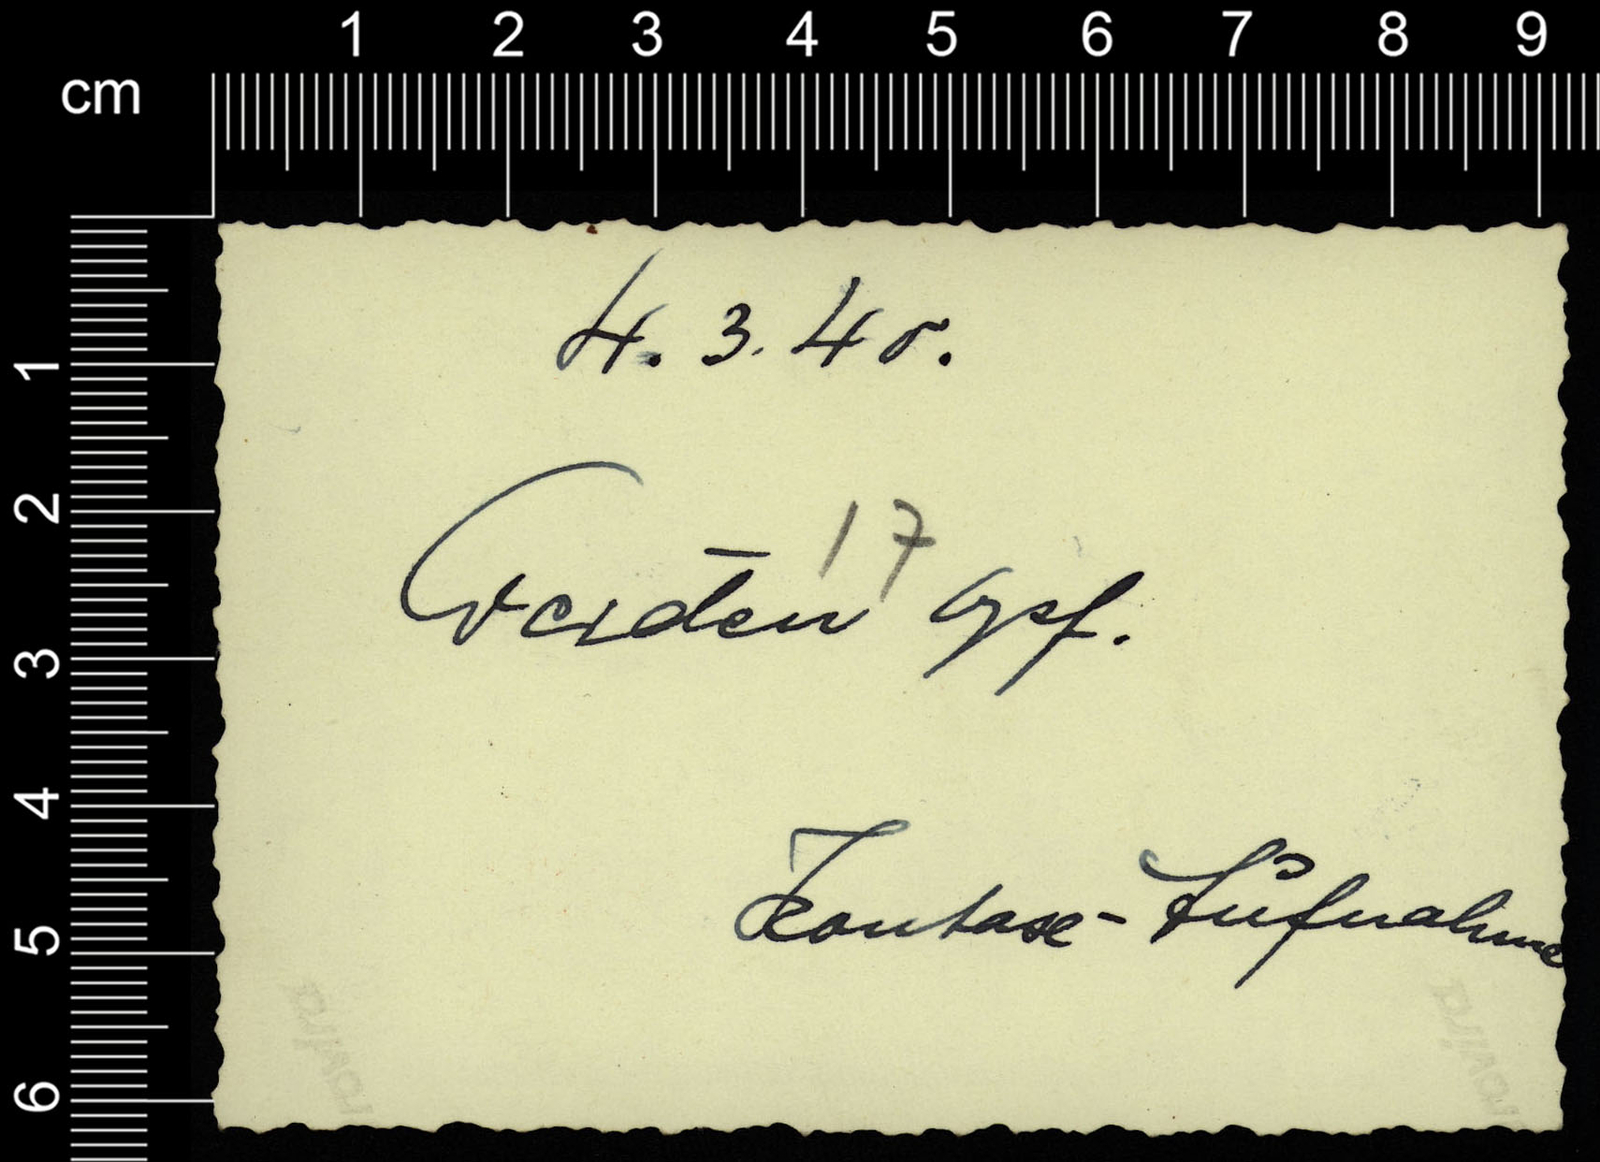 1 2 3 4 5 6 7 8 9
cm
1
2
3
4
5
6
4. 3. 40.
17
Weiden Opf.
Aufnahme